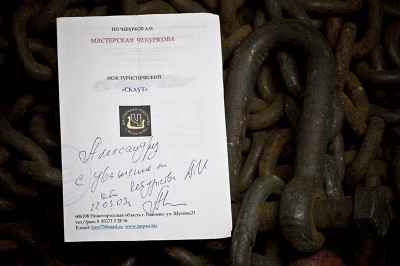 ИП ЧЕБУРКОВ А.И
МАСТЕРСКАЯ ЧЕБУРКОВА
НОЖ ТУРИСТИЧЕСКИЙ
«СКАУТ»
Александру
с уважением
от Чебуркова А.И
22.03.09г
606108 Нижегородская область г. Павлово ул. Шутова, 21
тел/факс 8 83171 3 28 16